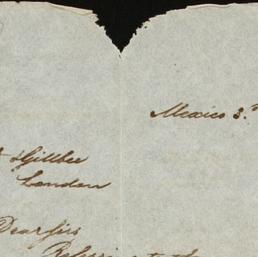 Mexico 3.
& Gillbee
London
Dear Sirs